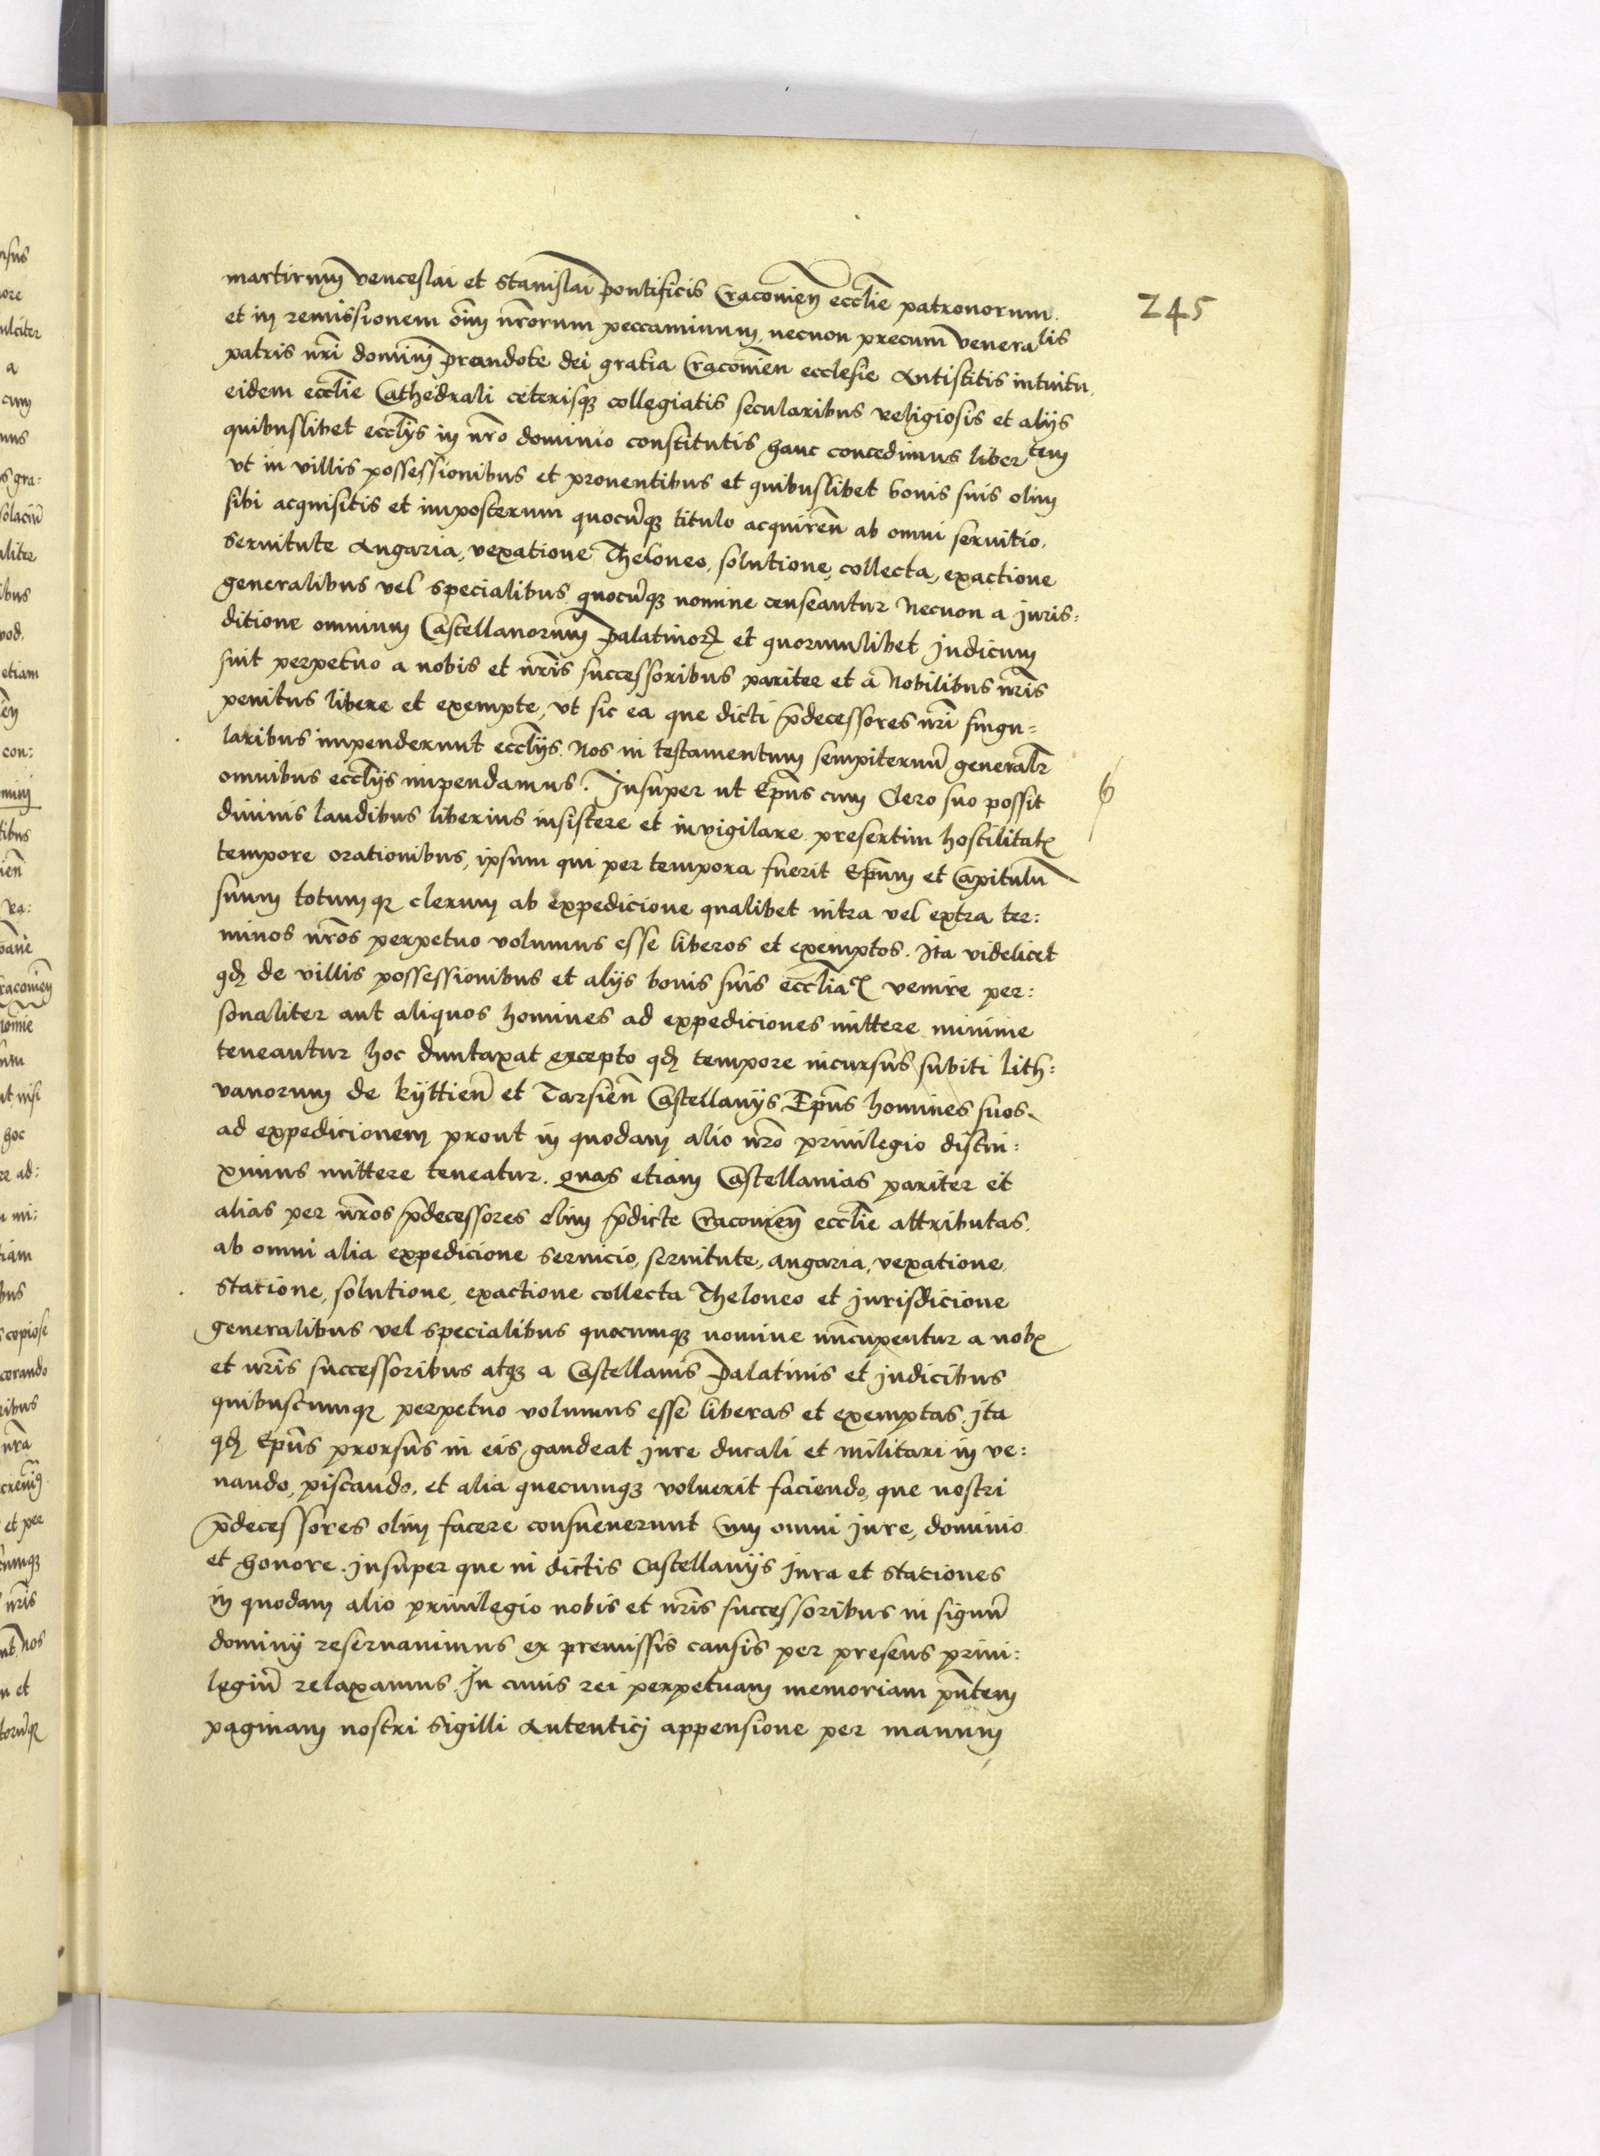 245
martirum venceslai et Stanislai pontificis Cracovien̄ eccl̄ie patronorum.
et in remissionem oīm nr̄orum peccaminum, necnon precum veneralis
patris nr̄i domini prandote dei gratia Cracovien̄ ecclesie Antistitis intuitu.
eidem eccl̄ie Cathedrali ceterisq; collegiatis secularibus religiosis et alijs
quibuslibet eccl̄ijs in nr̄o dominio constitutis hanc concedimus libertem
vt in villis possessionibus et proventibus et quibuslibet bonis suis olim
sibi acquisitis et imposterum quocūq; titulo acquiren̄ ab omni servitio.
Servitute Angaria, vexatione Theloneo, solutione, collecta, exactione
generalibus vel specialibus quocūq; nomine censeantur Necnon a juris:
ditione omnium Castellanorum palatinorꝝ et quorumlibet judicum
sint perpetuo a nobis et nr̄is successoribus pariter et a Nobilibus nr̄is
penitus libere et exempte, vt sic ea que dicti p̄decessores nr̄i singu=
laribus impenderunt eccl̄ijs. Nos in testamentum sempiternū generalr̄
omnibus eccl̄ijs impendamus. Insuper ut Ep̄us cum Clero suo possit
divinis laudibus liberius insistere et invigilare presertim hostilitatꝭ
tempore orationibus, ipsum qui per tempora fuerit Ep̄um et Capitulū
suum totumqꝫ clerum ab expedicione qualibet intra vel extra ter:
minos nr̄os perpetuo volumus esse liberos et exemptos. Ita videlicet
qđ de villis possessionibus et alijs bonis suis eccl̄iaꝭ venire per:
sonaliter aut aliquos homines ad expediciones mittere minime
teneantur hoc duntaxat excepto qđ tempore incursus subiti lith:
vanorum de kyttien̄ et Tarsien̄ Castellanijs Ep̄us homines suos
ad expedicionem prout in quodam alio nr̄o privilegio distin:
ximus mittere teneatur. Quas etiam Castellanias pariter et
alias per nr̄os p̄decessores olim p̄dicte Cracovien̄ eccl̄ie attributas.
ab omni alia expedicione servicio, servitute, angaria, vexatione,
Statione, solutione, exactione collecta Theloneo et jurisdicione
generalibus vel specialibus quocumqꝫ nomine nūcupentur a nobꝭ
et nr̄is successoribus atqꝫ a Castellanis palatinis et judicibus
quibuscumqꝫ perpetuo volumus esse liberas et exemptas. ita
qđ Ep̄us prorsus in eis gaudeat jure ducali et militari in ve:
nando, piscando, et alia quecumqꝫ voluerit faciendo, que nostri
p̄decessores olim facere consueverunt Cum omni jure, dominio
et honore. insuper que in dictis Castellanijs jura et stationes
in quodam alio privilegio nobis et nr̄is successoribus in signū
dominij reservavimus ex premissis causis per presens privi:
legiū relaxamus. In cuius rei perpetuam memoriam pn̄tem
paginam nostri Sigilli Autentici appensione per manum